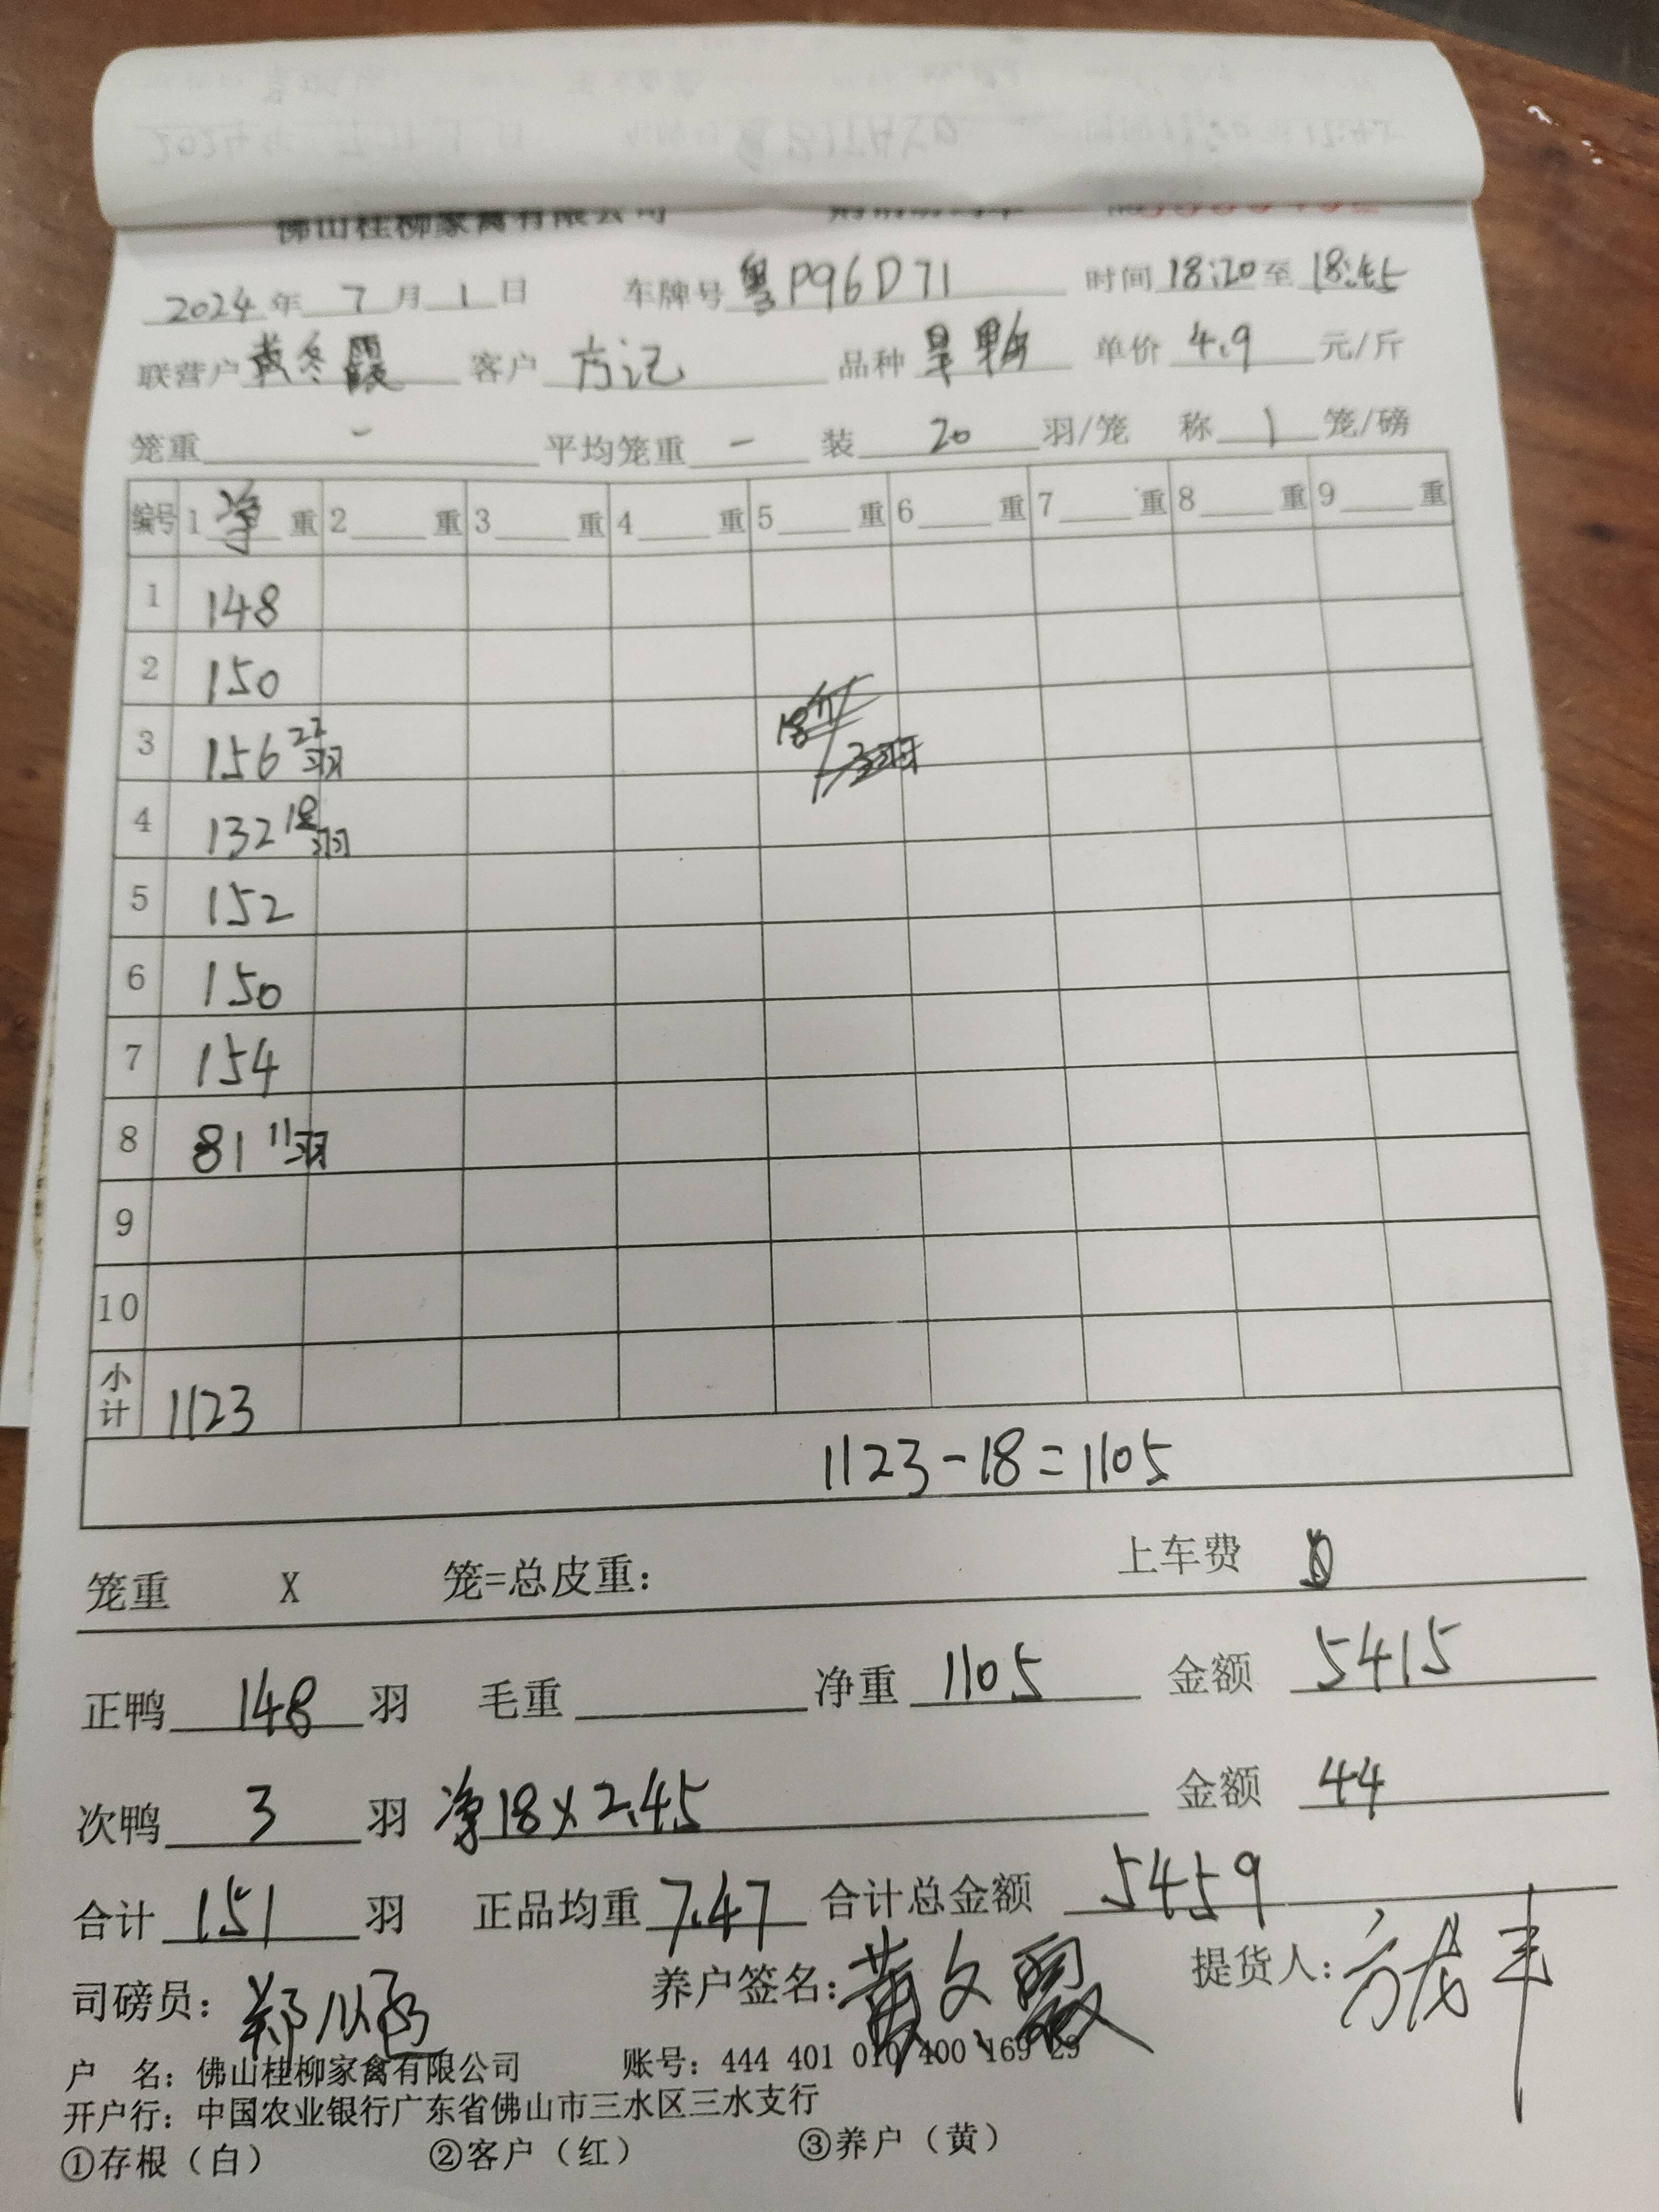 佛山桂柳家禽有限公司
2024年 7月 1日 车牌号 粤P96D71 时间 18:20 至 18:45
联营户 黄冬霞 客户 方记 品种 单价 4.9 元/斤
笼重 - 平均笼重 - 装 20 羽/笼 称 1 笼/磅
编号 1 净 重 2 重 3 重 4 重 5 重 6 重 7 重 8 重 9 重
1 148
2 150
3 156 22羽 18斤/3羽
4 132 18羽
5 152
6 150
7 154
8 81 11羽
9
10
小计 1123
1123-18=1105
笼重 X 笼=总皮重: 上车费
正鸭 148 羽 毛重 净重 1105 金额 5415
次鸭 3 羽 净18×2.45 金额 44
合计 151 羽 正品均重 7.47 合计总金额 5459
司磅员: 养户签名: 提货人:
户 名: 佛山桂柳家禽有限公司 账号: 444 401 010 400 169 29
开户行: 中国农业银行广东省佛山市三水区三水支行
①存根(白) ②客户(红) ③养户(黄)